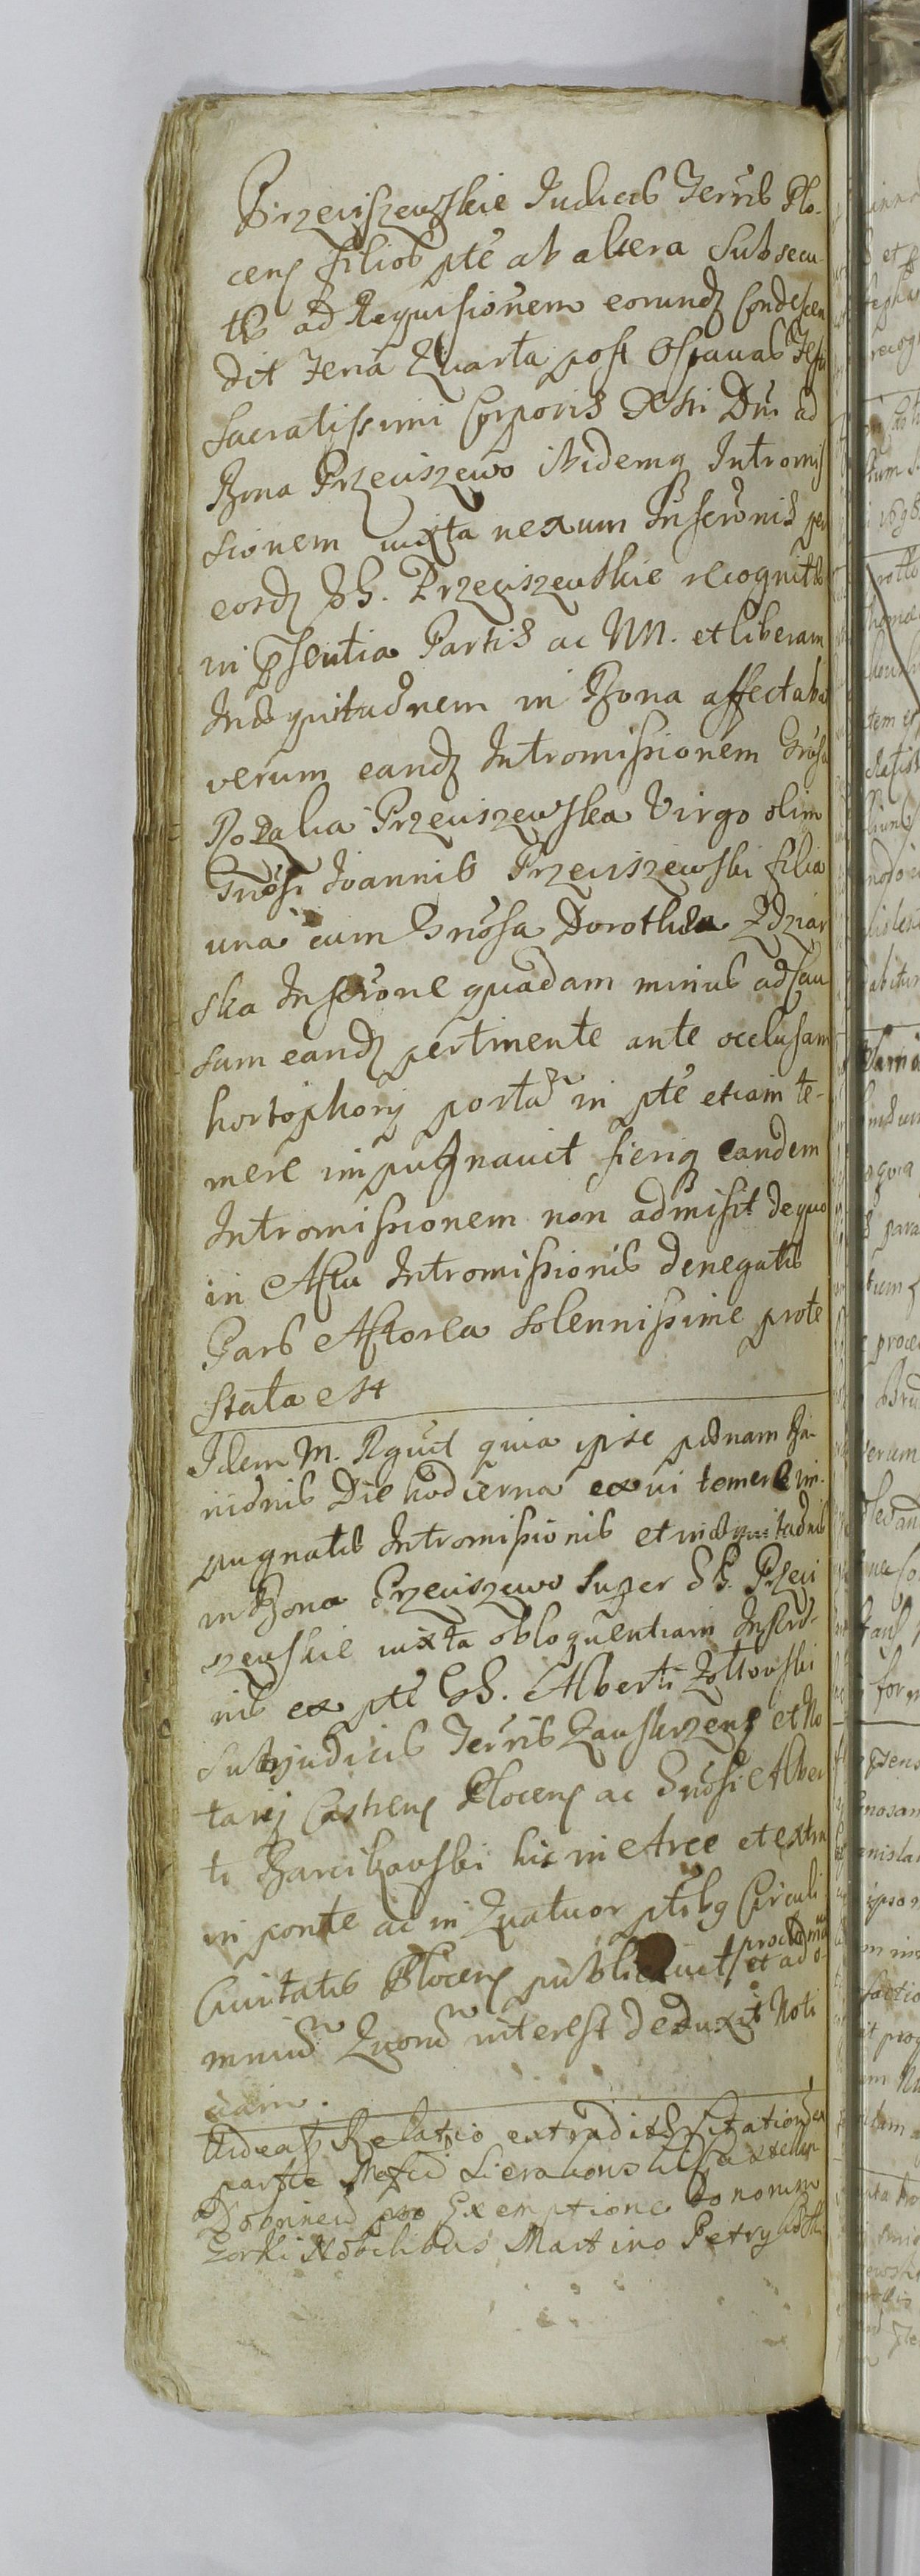 Przeciszewskie Iudicis Terris Plo-
cen filios pte ab altera Subsecu-
tis ad Requisionem eorund Condescen
dit Feria Quarta post Octavas Festi
Sacratissimi Corporis Xsti Dni ad
Bona Przeciszewo ibidemq Intromis
sionem iuxta nexum Inscronis per
eosd GG. Przeciszewskie recognitae
in Psentia Partis ac NN. et liberam
Ineqnitaonem in Bona affectabat
verum eand Intromissionem Grosa
Rozalia Przeciszewska Virgo olim
Grosi Joannis Przeciszewski filia
una cum Grosa Dorothea Zdziar
ska Inscrone quadam minus ad cau
sam eand pertinente ante occlusam
hortophorij portam in pte etiam te-
mere impugnavit fieriq eandem
Intromissionem non admisit de quo
in Actu Intromissionis denegatae
Pars Actorea solennissime prote
stata est
Idem M. Rgvit quia ipse paenam Ba-
nionis Die hodierna ex vi temere im-
pugnatae Intromissionis et ineqnitaonis
in Bona Przeciszewo super GG. Przeci
szewskie iuxta obloquentiam Inscro-
nis ex pte GG. Alberti Zoltowski
Subjudicis Terris Zawskrzen et No
tarij Castren Plocen ac Grosi Alber
ti Barcikowski hic in Arce et extra
in ponte ac in Quatuor ptibq Circuli
Civitatis Plocen publicavit proclamavit et ad o-
mnium Quorum interest deduxit Noti
ciam.
Videat Relatio extraditae Citationis ex
parte Mefici Sierakowski Castellan
Dobrinen pro Exemptione bonorum
Gorki Nobilibus Martino Petrykoski